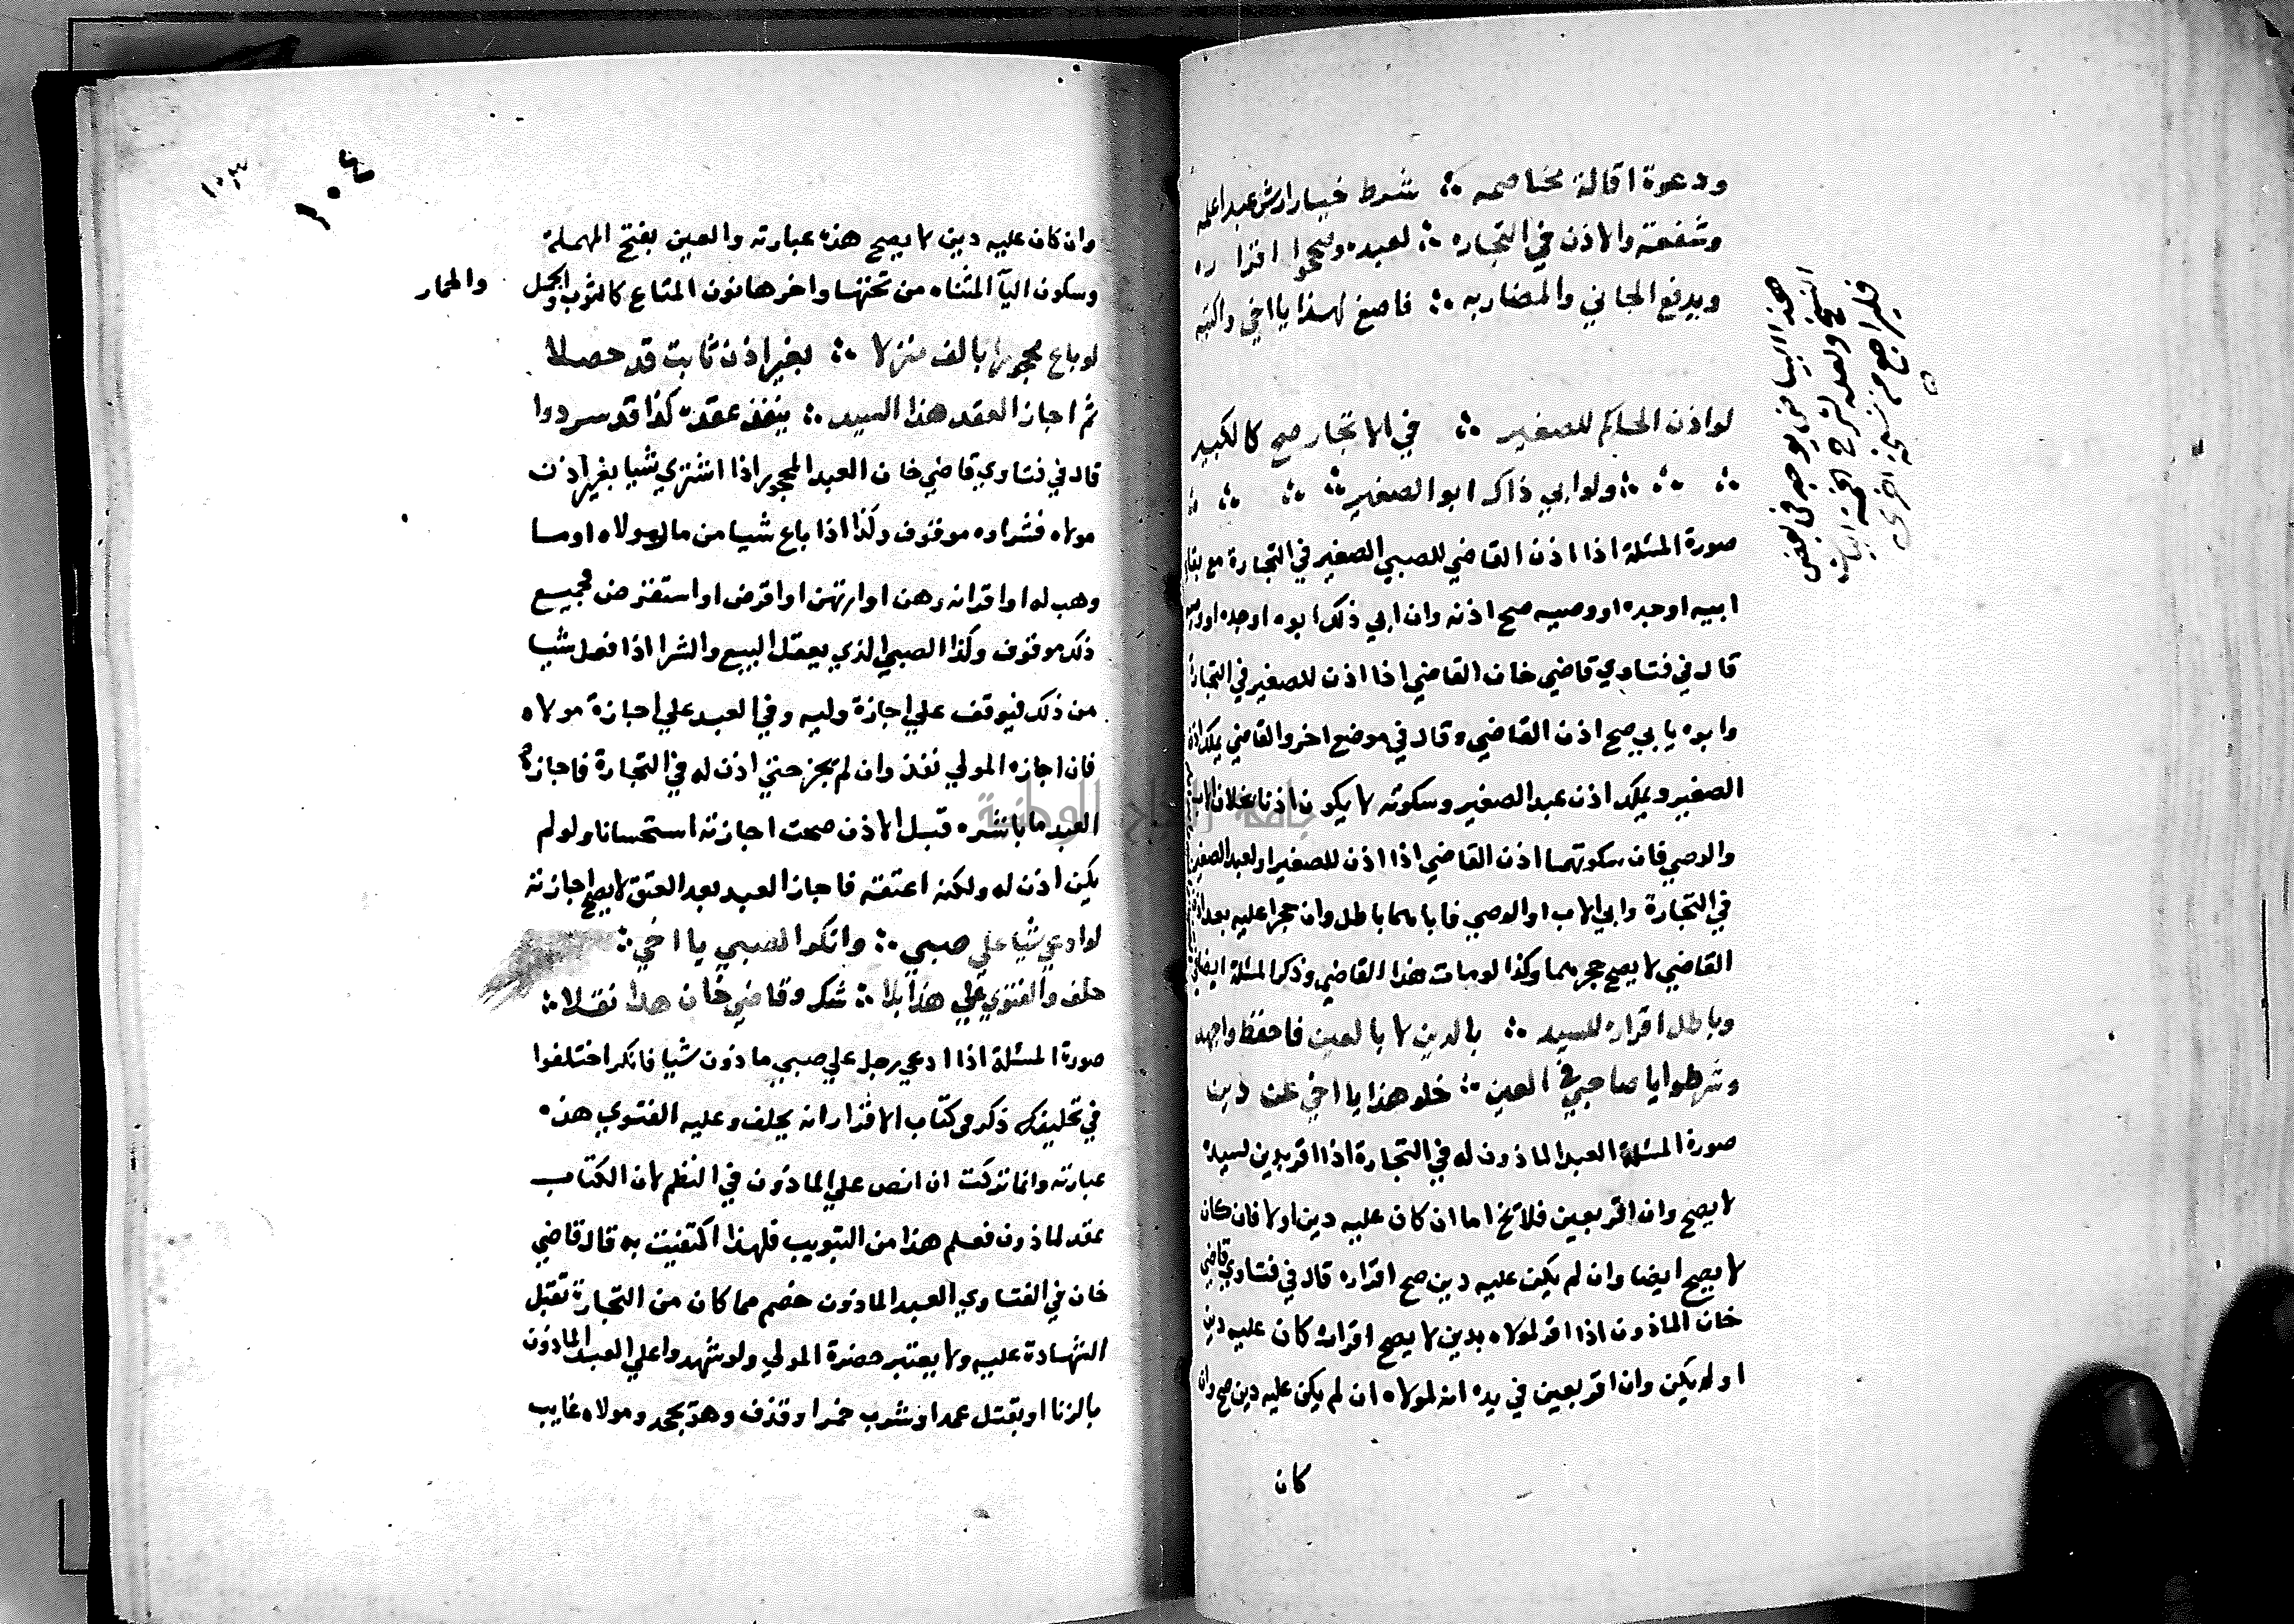 ودعوة اقالة مخاصمه ∴ شرط خيار ارش عبد اعلمه
وشفعته والاذن في التجاره ∴ لعبده وصححوا اقراره
ويدفع الجاني والمضاربه ∴ فاصغ لهذا يا اخي واكتبه
لو اذن الحاكم للصغير ∴ في الاتجار صح كالكبير
∴ ∴ ∴ ولو ابي ذاك ابو الصغير ∴ ∴ ∴ ∴
صورة المسئلة اذا اذن القاضي للصبي الصغير في التجارة مع بقاء
ابيه او جده او وصيه صح اذنه وان ابي ذلك ابوه او جده او وصيه
قال في فتاوي قاضي خان القاضي اذا اذن للصغير في التجارة
وابوه يابي صح اذن القاضي وقال في موضع اخر والقاضي يملك اذن
الصغير ويملك اذن عبد الصغير وسكوته لا يكون اذنا بخلاف الاب
والوصي فان سكوتهما اذن القاضي اذا اذن للصغير او لعبد الصغير
في التجارة وابي الاب او الوصي فاباهما باطل وان حجرا عليه بعد اذن
القاضي لا يصح حجرهما وكذا لو مات هذا القاضي وذكر المسئلة ايضا في
وباطل اقراره للسيد ∴ بالدين لا بالعين فاحفظ واجهد
وشرطوا يا صاحبي في العين ∴ خلو هذا يا اخي عن دين
صورة المسئلة العبد الماذون له في التجارة اذا اقر بدين لسيده
لا يصح وان اقر بعين فلا يخ اما ان كان عليه دين اولا فان كان
لا يصح ايضا وان لم يكن عليه دين صح اقراره قال في فتاوي قاضي
خان الماذون اذا اقر لمولاه بدين لا يصح اقراره كان عليه دين
او لم يكن وان اقر بعين في يده انه لمولاه ان لم يكن عليه دين صح وان
كان
هذا البياض يوجد في بعض
النسخ ولعله لشرح الخمسة ابيات
فليراجع من نسخة اخرى
١٠٤
١٠٣
وان كان عليه دين لا يصح هذه عبارته والعين بفتح المهملة
وسكون اليآ المثناه من تحتها واخرها نون المتاع كالثوب والجمل
والحمار
لو باع محجورا بالف منزلا ∴ بغير اذن ثابت قد حصلا
ثم اجاز العقد هذا السيد ∴ ينفذ عقده كذا قد سردوا
قال في فتاوي قاضي خان العبد المحجور اذا اشتري شيا بغير اذن
مولاه فشراوه موقوف وكذا اذا باع شيا من مال مولاه او ما
وهب له او اقرانه رهن او ارتهن او اقرض او استقرض فجميع
ذلك موقوف وكذا الصبي الذي يعقل البيع والشرا اذا فعل شيا
من ذلك فيوقف علي اجازة وليه وفي العبد علي اجازة مولاه
فان اجازه المولي نفذ وان لم يجز حتي اذن له في التجارة فاجاز
العبد ما باشره قبل الاذن صحت اجازته استحسانا ولو لم
يكن اذن له ولكنه اعتقه فاجاز العبد بعد العتق لا يصح اجازته
لو ادعي شيا علي صبي ∴ وانكر الصبي يا اخي ∴
حلف والفتوي علي هذا بلا ∴ شك وقاضي خان هذا نقلا ∴
صورة المسئلة اذا ادعي رجل علي صبي ماذون شيا فانكر اختلفوا
في تحليفه ذكر في كتاب الاقرار انه يحلف وعليه الفتوي هذه
عبارته وانما تركت ان انص علي الماذون في النظم لان الكتاب
عقد لماذون فعلم هذا من التبويب فلهذا اكتفيت به قال قاضي
خان في الفتاوي العبد الماذون خصم مما كان من التجارة تقبل
الشهادة عليه ولا يعتبر حضرة المولي ولو شهدوا علي العبد الماذون
بالزنا او بقتل عمدا او شرب خمرا وقذف وهو يجحد ومولاه غايب